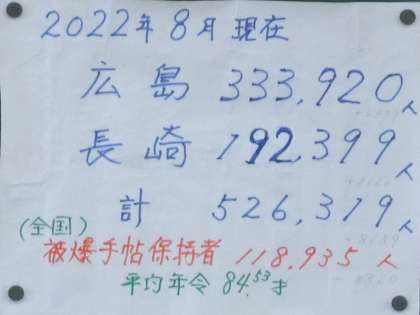 2022年8月現在
広島 333,920人
長崎 192,399人
計 526,319人
(全国)
被爆手帖保持者 118,935人
平均年令 84.53才